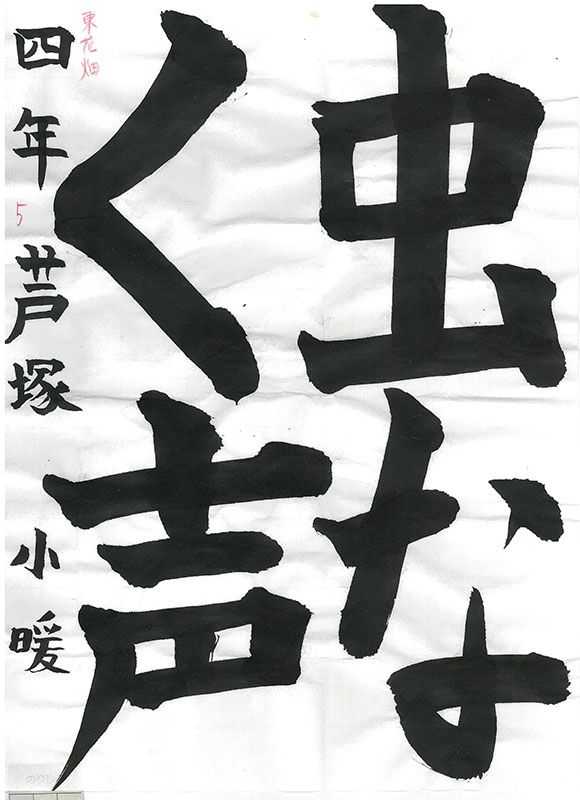 虫な
く声
東花畑
四年 芦塚 小暖
5